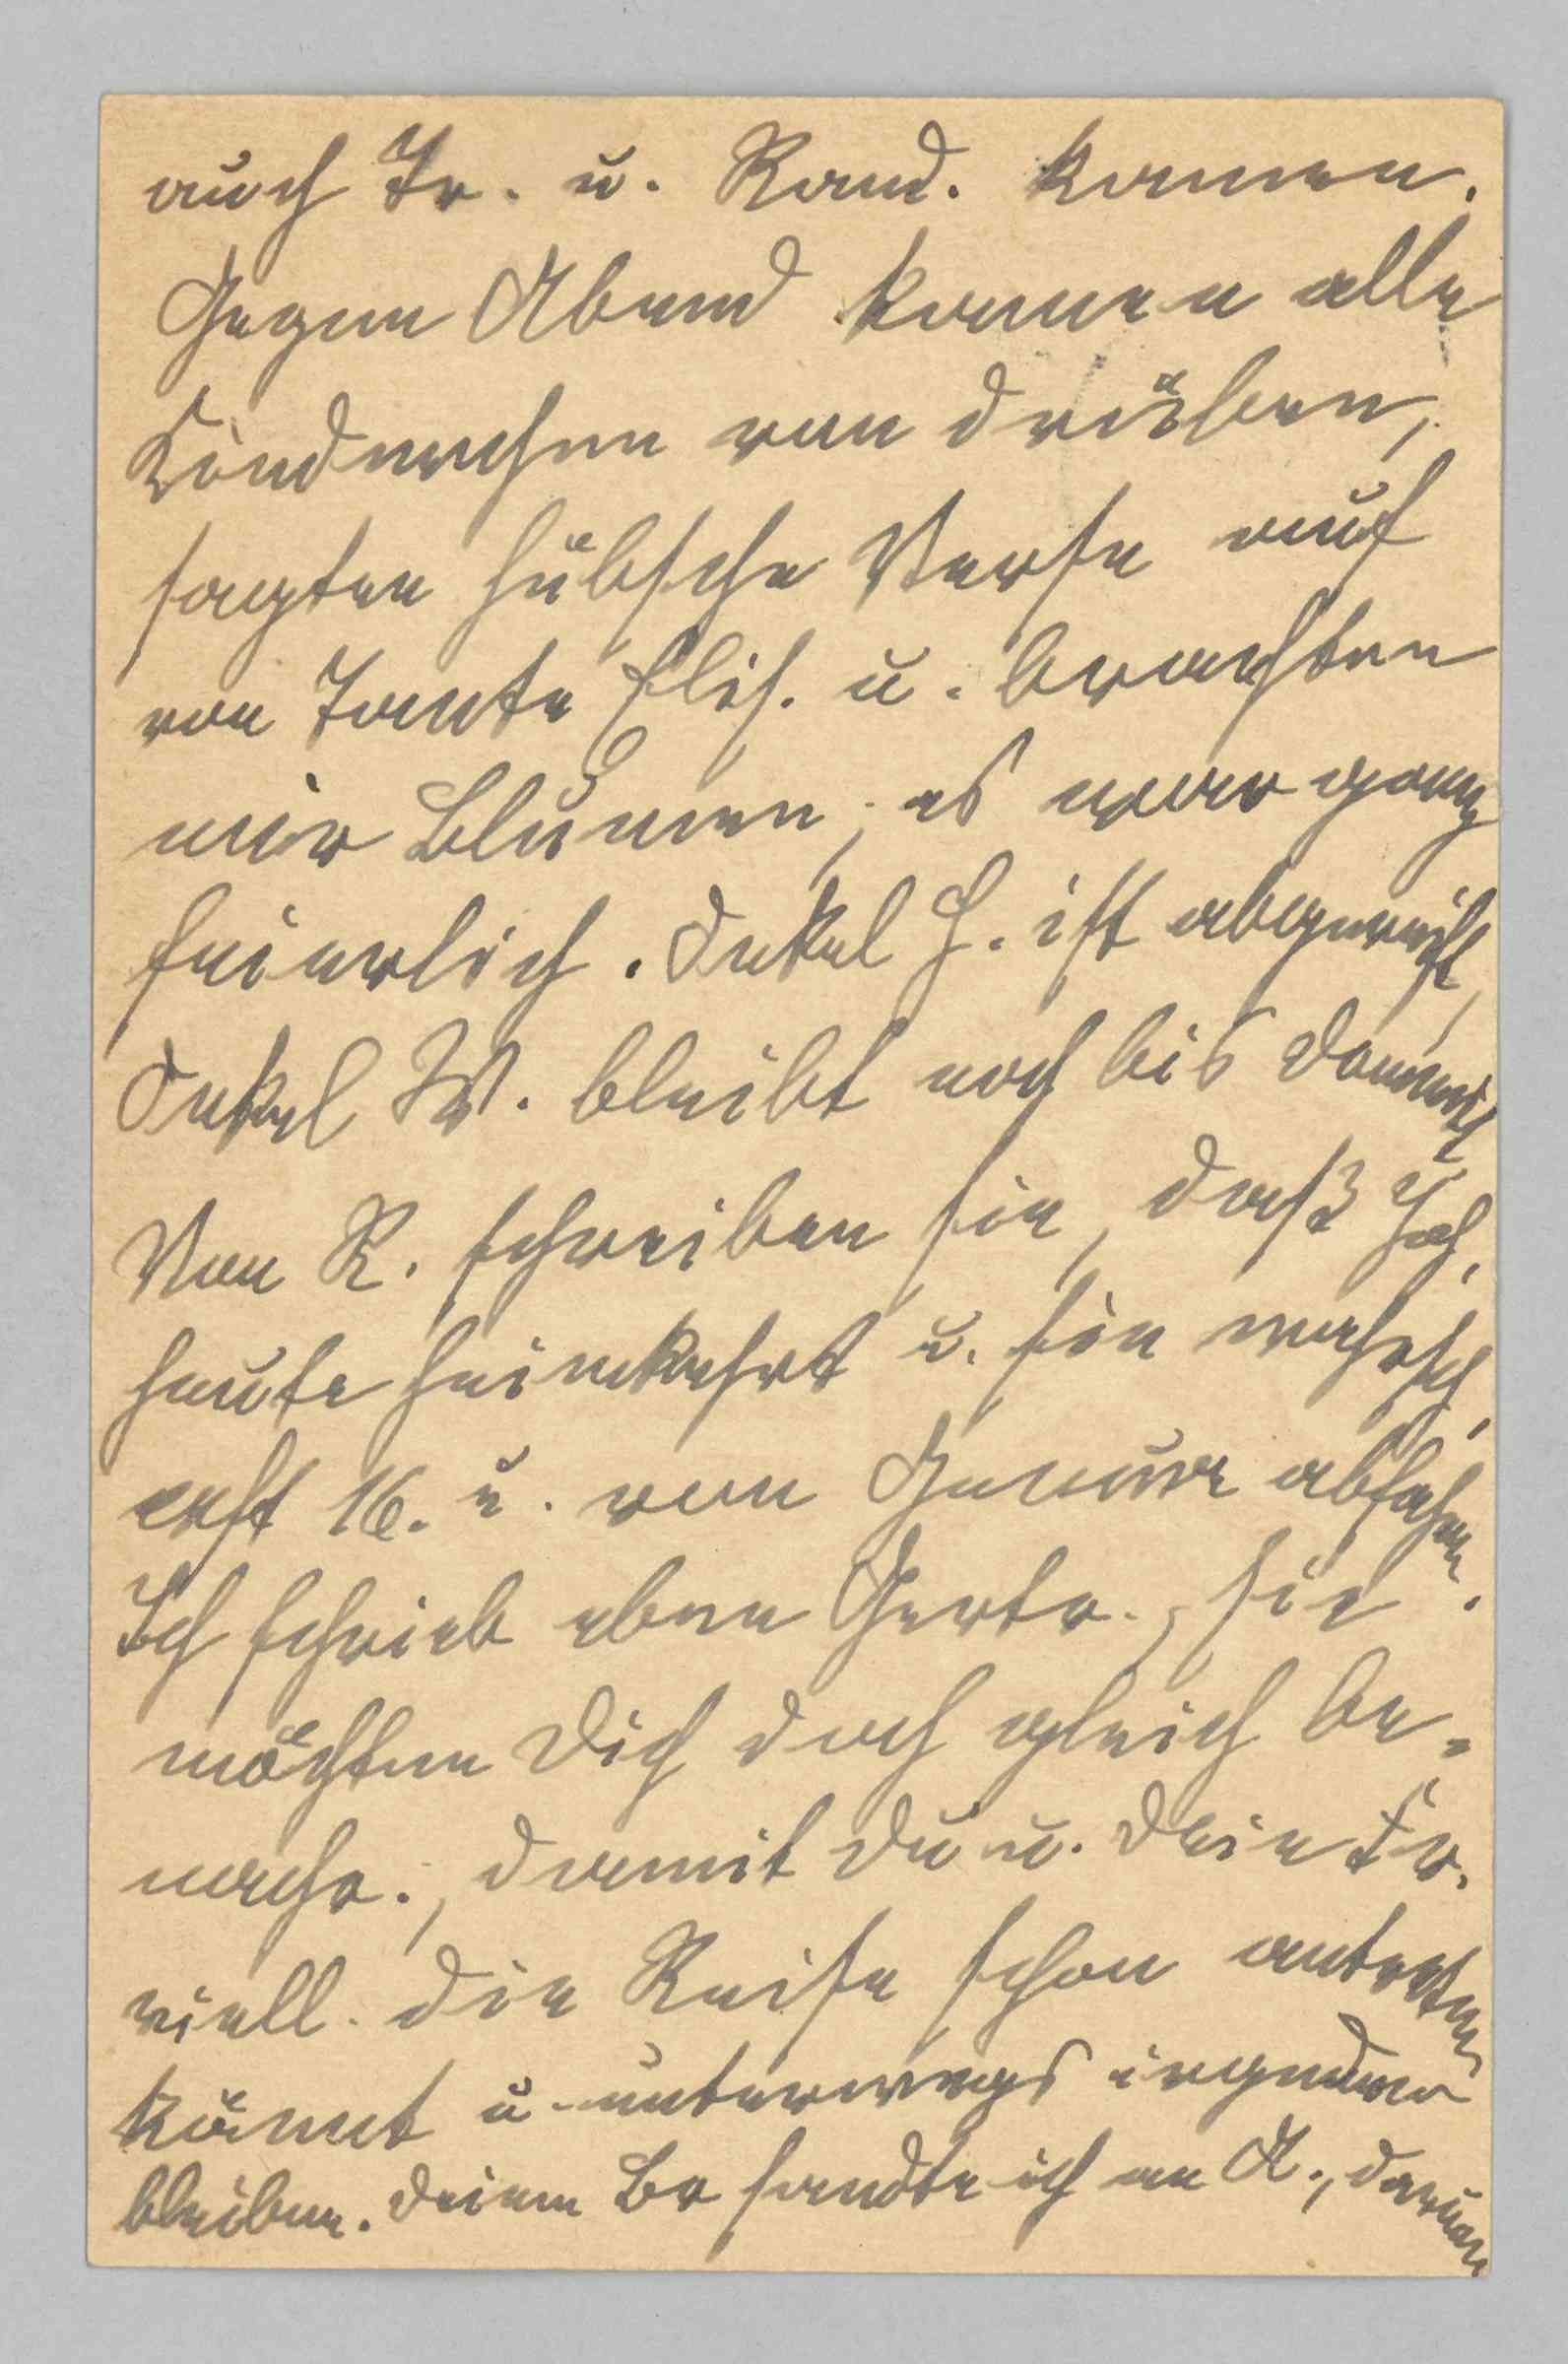 auch Fr. u. Rand. kamen.
Gegen Abend kamen alle
Kinderchen von drüben,
sagten hübsche Verse auf
von Tante Elis. u. brachten
mir Blumen; es war ganz
feierlich. Onkel H. ist abgereist,
Onkel W. bleibt noch bis
Von R. schreiben sie, daß Joh.
heute heimkehrt u. sie wahrsch.
erst 16. u. von Genua abfahren.
Ich schrieb eben Gertr., sie
möchten Dich doch gleich be-
nachr., damit Du u. Dein Fr.
viell. die Reise schon antreten
könnt u. unterwegs irgendwo
bleiben. Deinen Br sandte ich an A., darum